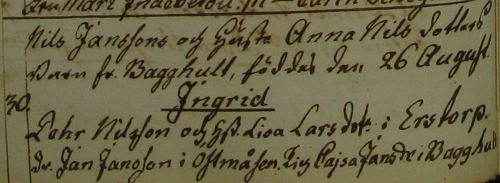 Nils Janssons och Hust. Anna Nils dotters
Barn fr. Bagghult, föddes den 26 August.
30. Ingrid
Pehr Nilsson och H. Lisa Lars dotr i Erstorp.
dr. Jan Jansson i Ostmåsen. Pig Cajsa Jansdr i Bagghult